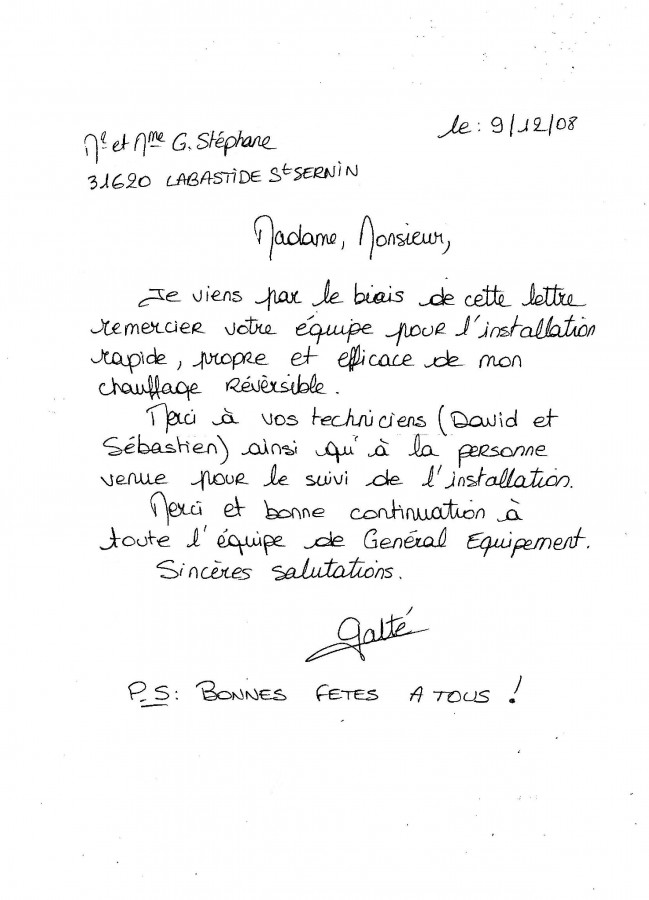 Mr et Mme G. Stéphane
le : 9/12/08
31620 LABASTIDE St SERNIN
Madame, Monsieur,
Je viens par le biais de cette lettre
remercier votre équipe pour l'installation
rapide, propre et efficace de mon
chauffage Réversible.
Merci à vos techniciens (David et
Sébastien) ainsi qu'à la personne
venue pour le suivi de l'installation.
Merci et bonne continuation à
toute l'équipe de Général Equipement.
Sincères salutations.
Galté
P.S : BONNES FETES A TOUS !